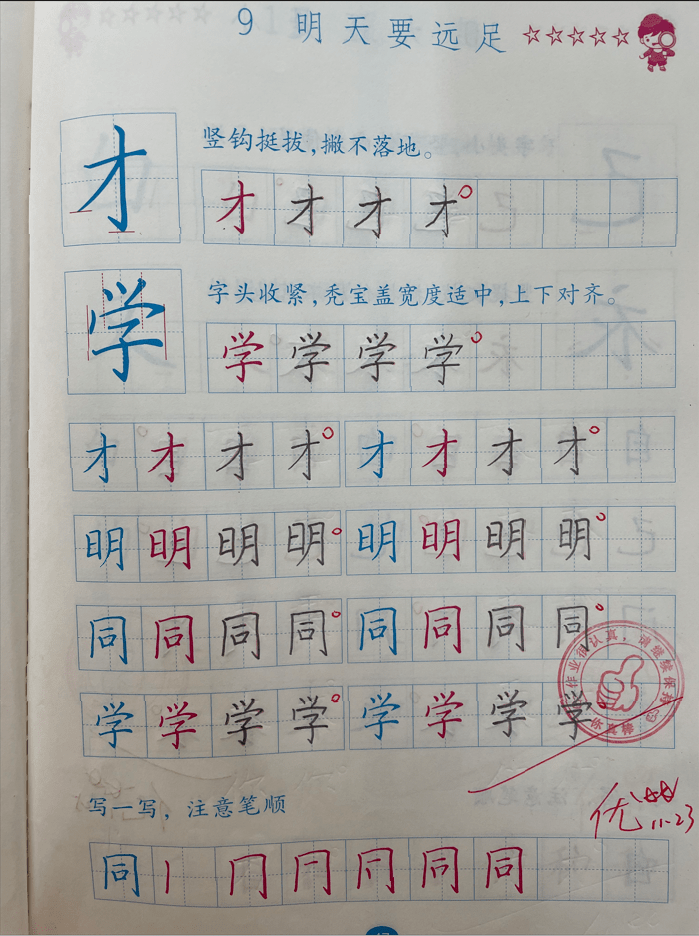 9 明天要远足 ☆☆☆☆☆
才
竖钩挺拔,撇不落地。
才 才 才 才
学
字头收紧,秃宝盖宽度适中,上下对齐。
学 学 学 学
才 才 才 才 才 才 才 才
明 明 明 明 明 明 明 明
同 同 同 同 同 同 同 同
作业很认真,请继续保持
你真棒
学 学 学 学 学 学 学 学
写一写,注意笔顺
优 11.23
同 丨 冂 同 同